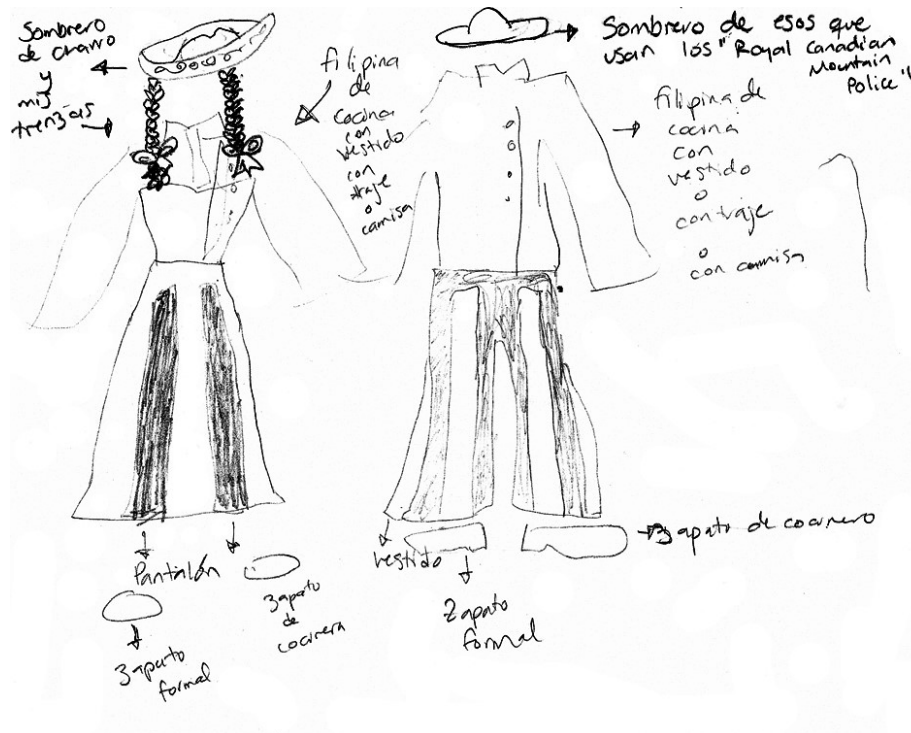 Sombrero
de charro
y
mis
trenzas
filipina
de
cocina
con
vestido
con
traje
o
camisa
Sombrero de esos que
usan los "Royal Canadian
Mountain
Police"
filipina de
cocina
con
vestido
o
con traje
o
con camisa
Pantalón
zapato
formal
zapato
de
cocinera
vestido
Zapato
formal
zapato de cocinero